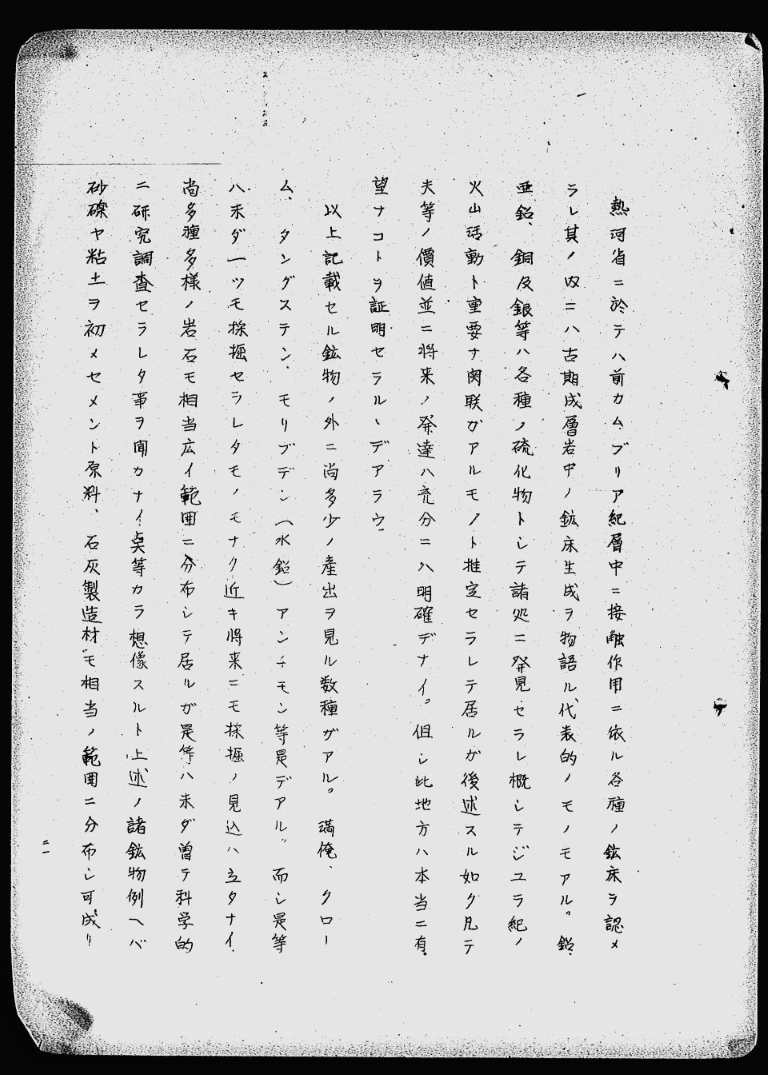 熱河省ニ於テハ前カムブリア紀層中ニ接触作用ニ依ル各種ノ鉱床ヲ認メ
ラレ其ノ内ニハ古期成層岩中ノ鉱床生成ヲ物語ル代表的ノモノモアル。鉛、
亜鉛、銅及銀等ハ各種ノ硫化物トシテ諸処ニ発見セラレ概シテジユラ紀ノ
火山活動ト重要ナ関联ガアルモノト推定セラレテ居ルガ後述スル如ク凡テ
夫等ノ價値並ニ将来ノ発達ハ充分ニハ明確デナイ。但シ此地方ハ本当ニ有
望ナコトヲ証明セラルヽデアラウ。
以上記載セル鉱物ノ外ニ尚多少ノ産出ヲ見ル数種ガアル。満俺、クロー
ム、タングステン、モリブデン（水鉛）アンチモン等是デアル。而シ是等
ハ未ダ一ツモ採掘セラレタモノモナク近キ将来ニモ採掘ノ見込ハ立タナイ。
尚多種多様ノ岩石モ相当広イ範囲ニ分布シテ居ルガ是等ハ未ダ曽テ科学的
ニ研究調査セラレタ事ヲ聞カナイ、点等カラ想像スルト上述ノ諸鉱物例ヘバ
砂礫ヤ粘土ヲ初メセメント原料、石灰製造材モ相当ノ範囲ニ分布シ可成リ
二一